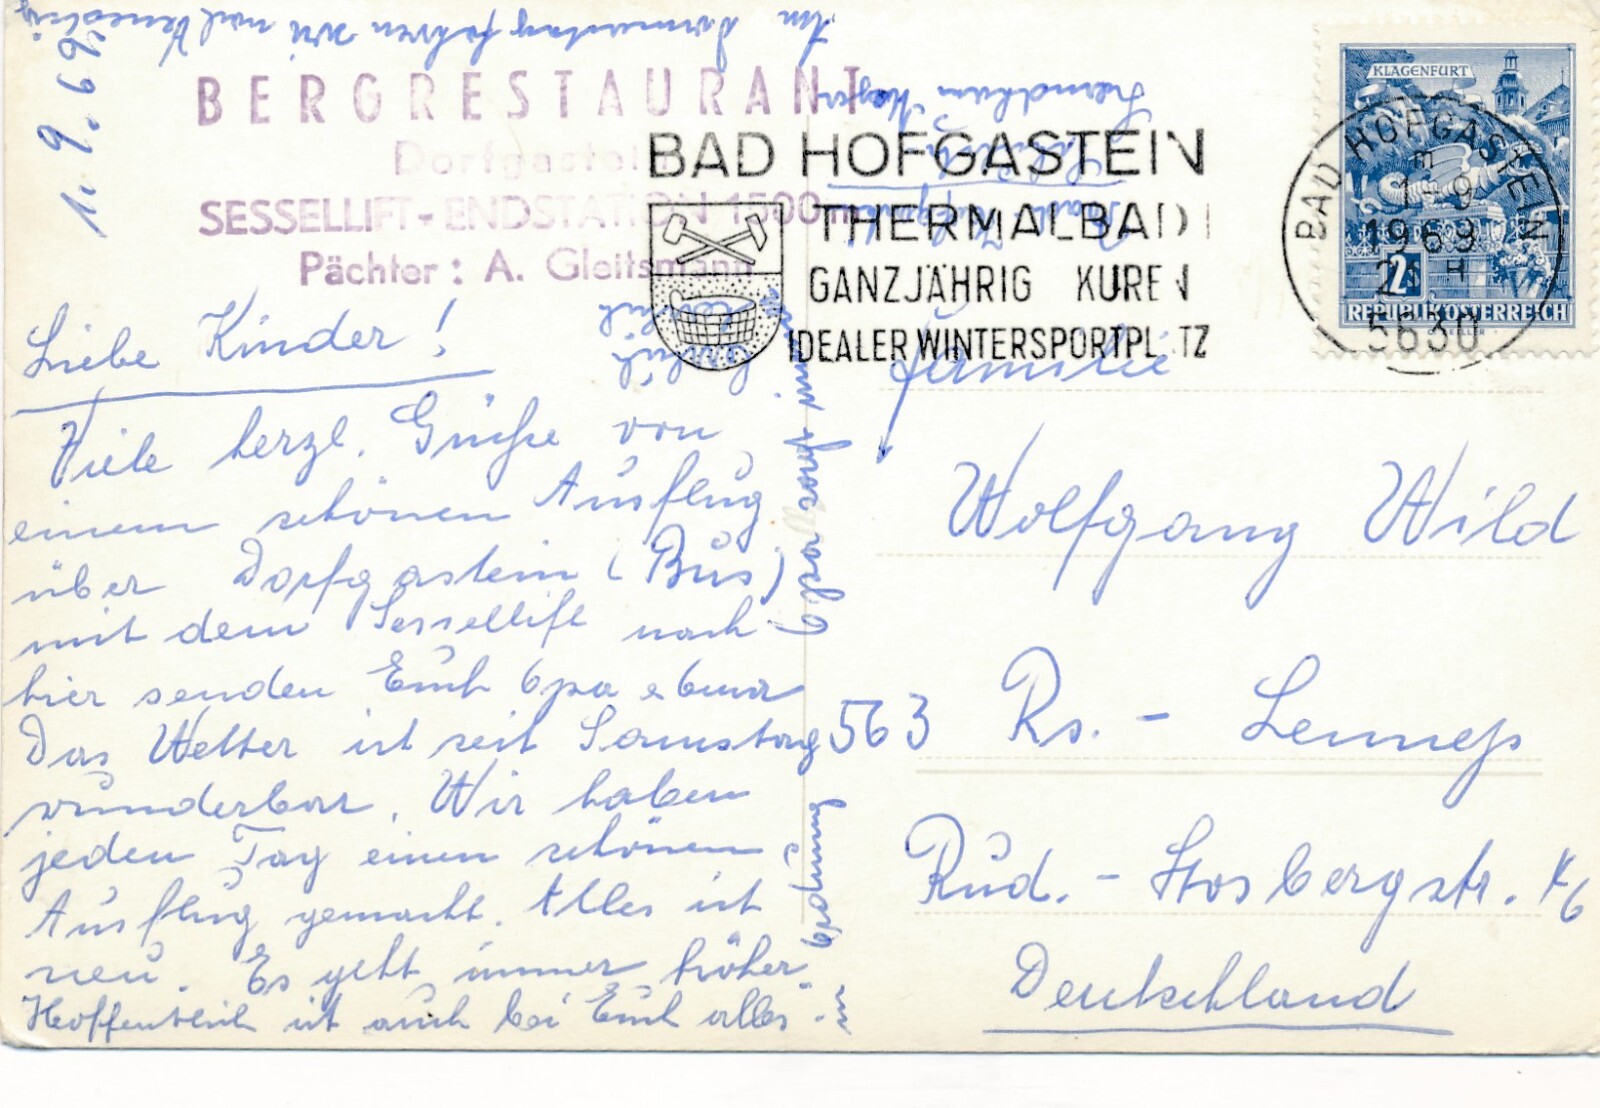 1. 9. 69
Am Donnerstag fahren wir nach Venedig
BERGRESTAURANT
Dorfgastein
SESSELLIFT-ENDSTATION 1500m
Pächter: A. Gleitsmann
BAD HOFGASTEIN
THERMALBAD
GANZJÄHRIG KUREN
IDEALER WINTERSPORTPLATZ
KLAGENFURT
2
REPUBLIK ÖSTERREICH
BAD HOFGASTEIN
1.-9.
1969
5630
Liebe Kinder!
Viele herzl. Grüße von
einem schönen Ausflug
über Dorfgastein (Bus)
mit dem Sessellift nach
hier senden Euch Opa
Das Wetter ist seit Samstag
wunderbar. Wir haben
jeden Tag einen schönen
Ausflug gemacht. Alles ist
neu. Es geht immer höher.
Hoffentlich ist auch bei Euch alles
in Ordnung
Familie
Wolfgang Wild
563 Rs.-Lennep
Rud.-Stosbergstr.
Deutschland